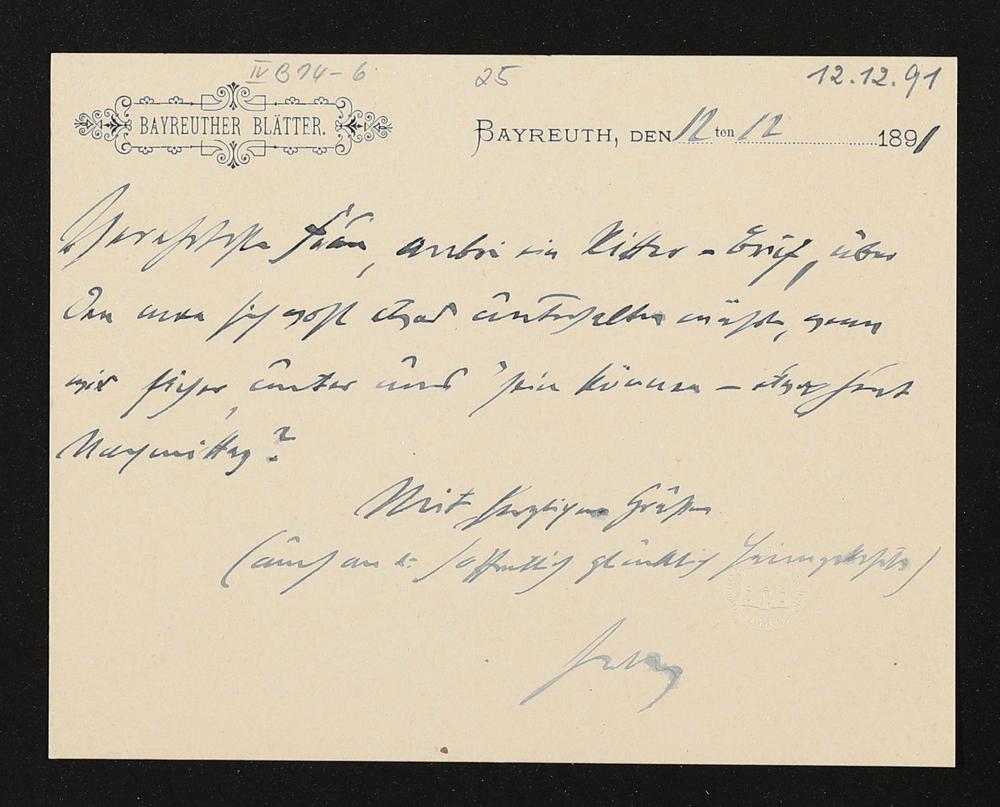 IV B 74-6
25
12.12.91
BAYREUTHER BLÄTTER.
BAYREUTH, DEN 12 ten 12 1891
Verehrteste Frau, anbei ein Ritter-Brief, über
den man sich wohl etwas unterhalten müßte, wenn
wir sicher unter uns sein können – etwa heut
Nachmittag?
Mit herzlichen Grüßen
(auch an d. hoffentlich glücklich Heimgekehrte)